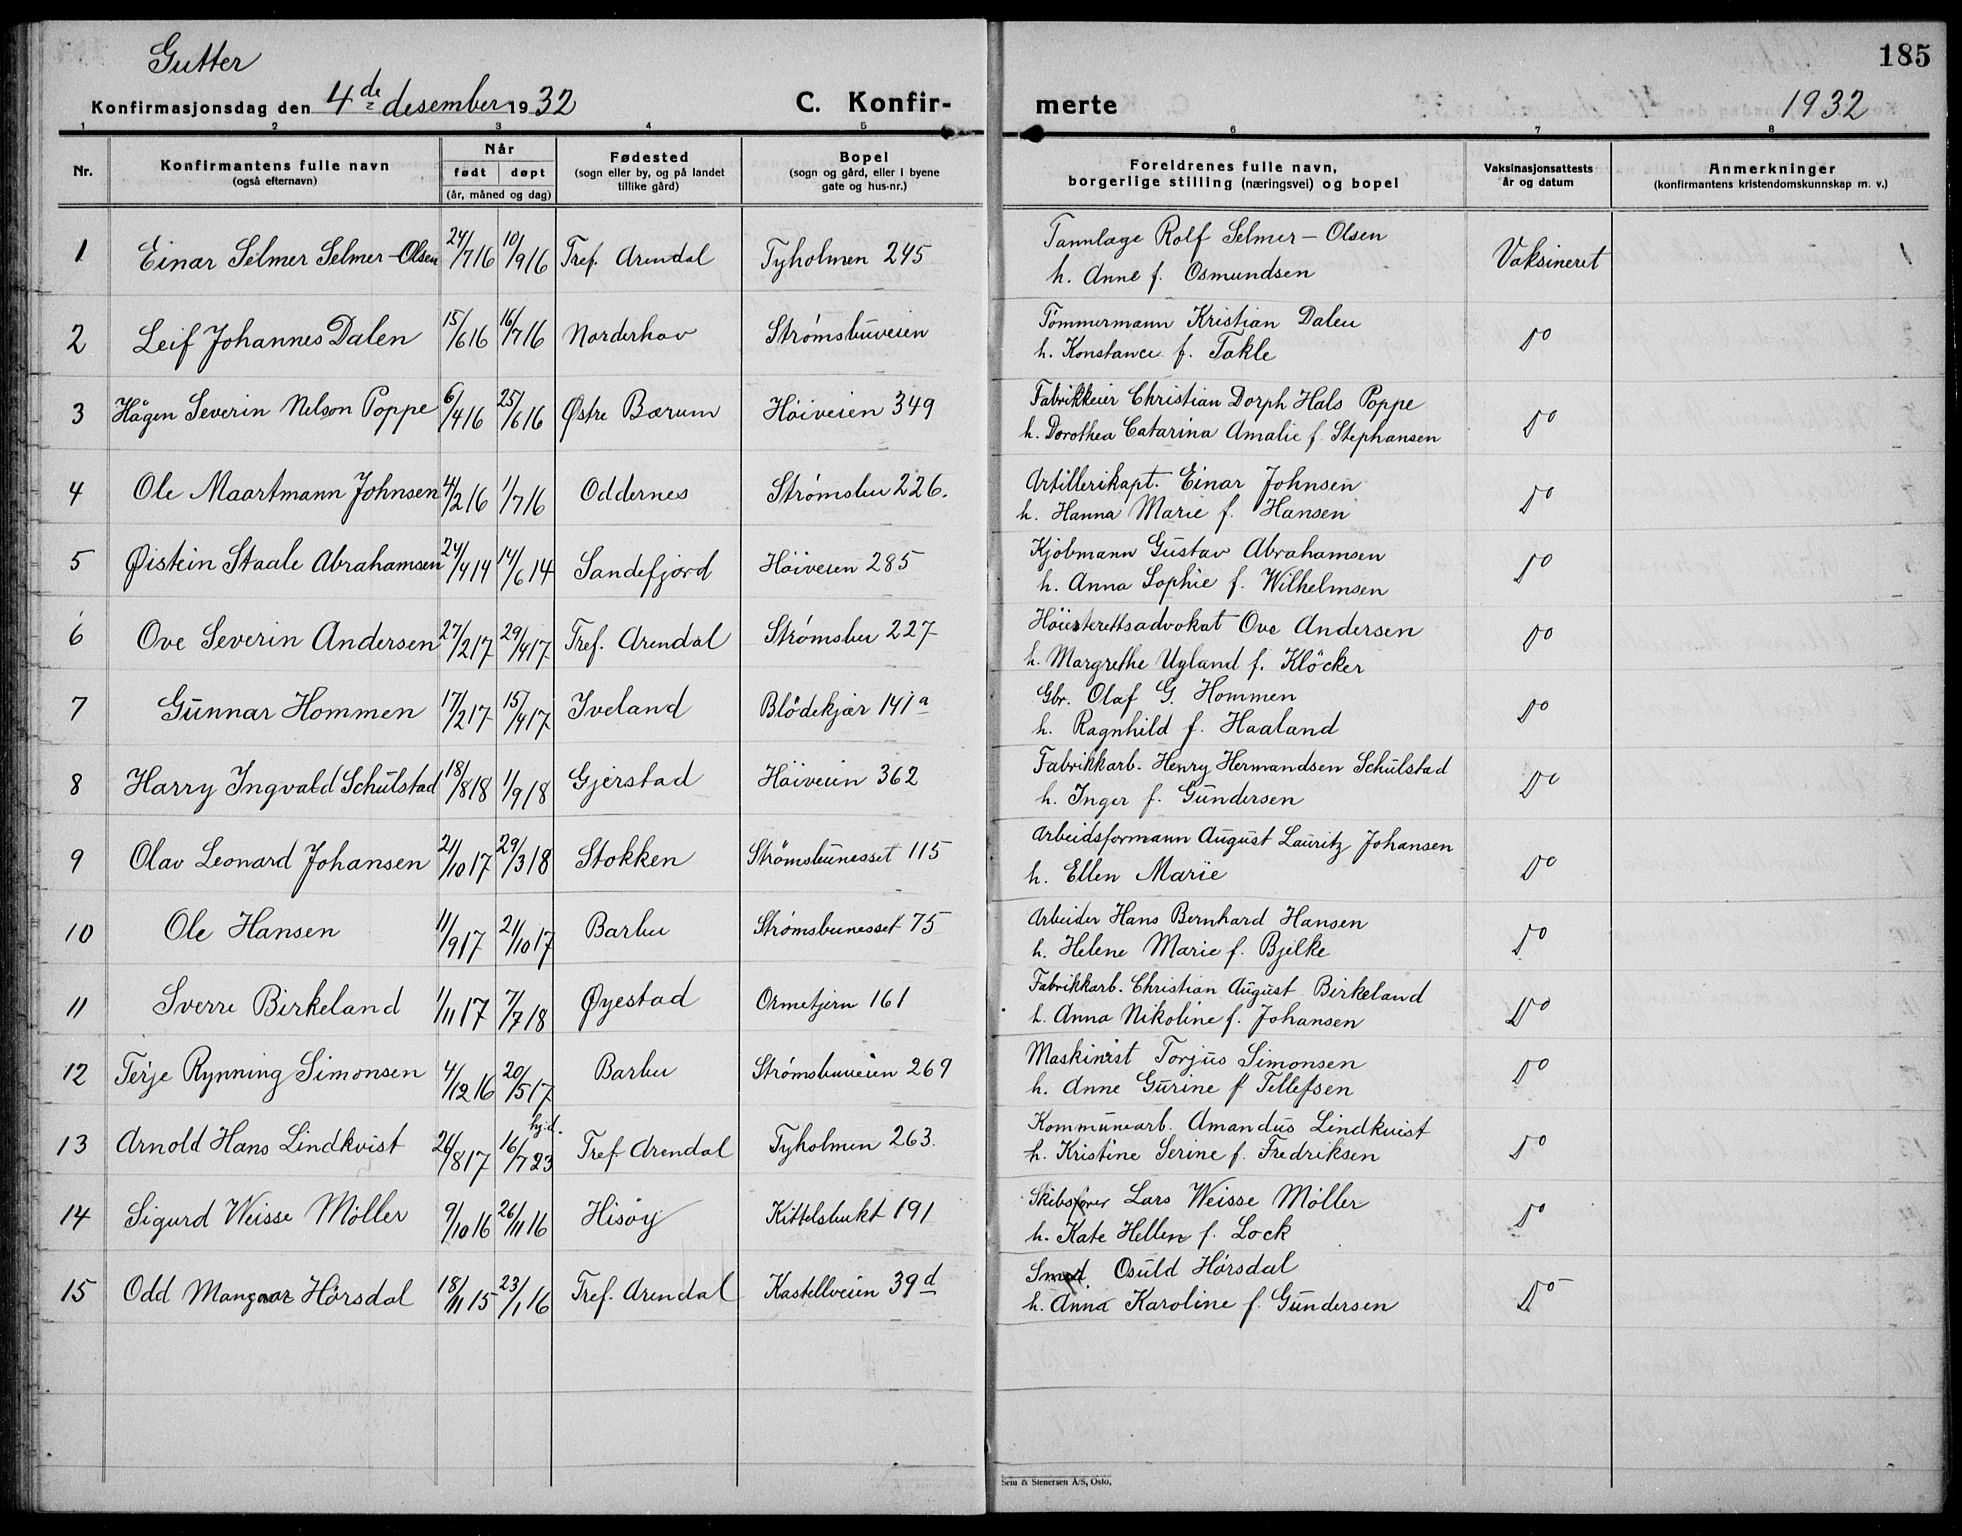 Gutter
185
Konfirmasjonsdag den 4de desember 1932 C. Konfir-merte 1932
1 2 3 4 5 6 7 8
Nr. Konfirmantens fulle navn (også efternavn) Når født døpt (år, måned og dag) Fødested (sogn eller by, og på landet tillike gård) Bopel (sogn og gård, eller i byene gate og hus-nr.) Foreldrenes fulle navn, borgerlige stilling (næringsvei) og bopel Vaksinasjonsattests år og datum Anmerkninger (konfirmantens kristendomskunnskap m. v.)
1 Einar Selmer Selmer-Olsen 24/716 10/916 Tref. Arendal Tyholmen 245 Tannlæge Rolf Selmer-Olsen Vaksineret 1
h. Anne f. Osmundsen
2 Leif Johannes Dalen 15/616 16/716 Norderhov Strømsbuveien Tömmermann Kristian Dalen Do
h. Konstance f. Takle
3 Hågen Severin Nelson Poppe 6/416 25/616 Østre Bærum Höiveien 349 Fabrikkeier Christian Dorph Hals Poppe Do
h. Dorothea Catarina Amalie f. Stephansen
4 Ole Maartmann Johnsen 4/216 1/716 Oddernes Strømsbu 226. Artillerikapt. Einar Johnsen Do
h. Hanna Marie f. Hansen
5 Øistein Staale Abrahamsen 24/414 14/614 Sandefjord Höiveien 285 Kjöbmann Gustav Abrahamsen Do
h. Anna Sophie f. Wilhelmsen
6 Ove Severin Andersen 27/217 29/417 Tref. Arendal Strømsbu 227 Höiesterettsadvokat Ove Andersen Do
h. Margrethe Ugland f. Klöcker
7 Gunnar Hommen 17/217 15/417 Iveland Blödekjær 141a Gbr. Olaf G. Hommen Do
h. Ragnhild f. Haaland
8 Harry Ingvald Schulstad 18/818 1/918 Gjerstad Höiveien 362 Fabrikkarb. Henry Hermandsen Schulstad Do
h. Inger f. Gundersen
9 Olav Leonard Johansen 21/1017 29/318 Stokken Strømsbunesset 115 Arbeidsformann August Lauritz Johansen Do
h. Ellen Marie
10 Ole Hansen 11/917 21/1017 Barbu Strømsbunesset 75 Arbeider Hans Bernhard Hansen Do
h. Helene Marie f. Bjelke
11 Sverre Birkeland 1/1117 7/718 Øyestad Ormetjern 161 Fabrikkarb. Christian August Birkeland Do
h. Anna Nikoline f. Johansen
12 Terje Rynning Simonsen 4/1216 20/517 Barbu Strømsbuveien 269 Maskinist Torjus Simonsen Do
h. Anne Gurine f Tellefsen
13 Arnold Hans Lindkvist 26/817 hj.d. 16/723 Tref. Arendal Tyholmen 263. Kommunearb. Amandus Lindkvist Do
h. Kristine Serine f. Fredriksen
14 Sigurd Weisse Möller 9/1016 26/1116 Hisøy Kittelsbukt 191 Skibsfører Lars Weisse Möller Do
h. Kate Hellen f. Lock
15 Odd Mangnar Hörsdal 18/1115 23/116 Tref. Arendal Kastellveien 39d Smed. Osuld Hörsdal Do
h. Anna Karoline f. Gundersen
Sem & Stenersen A/S, Oslo.